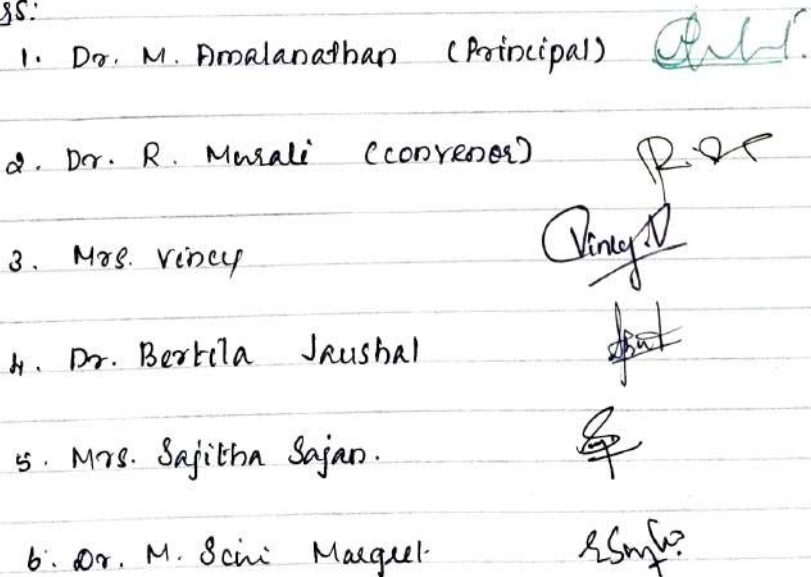 1. Dr. M. Amalanathan (Principal)
2. Dr. R. Murali (Convenor)
3. Mrs. Vincy Vincy.V
4. Dr. Bertila Jaushal
5. Mrs. Sajitha Sajan.
6. Dr. M. Seini Margret